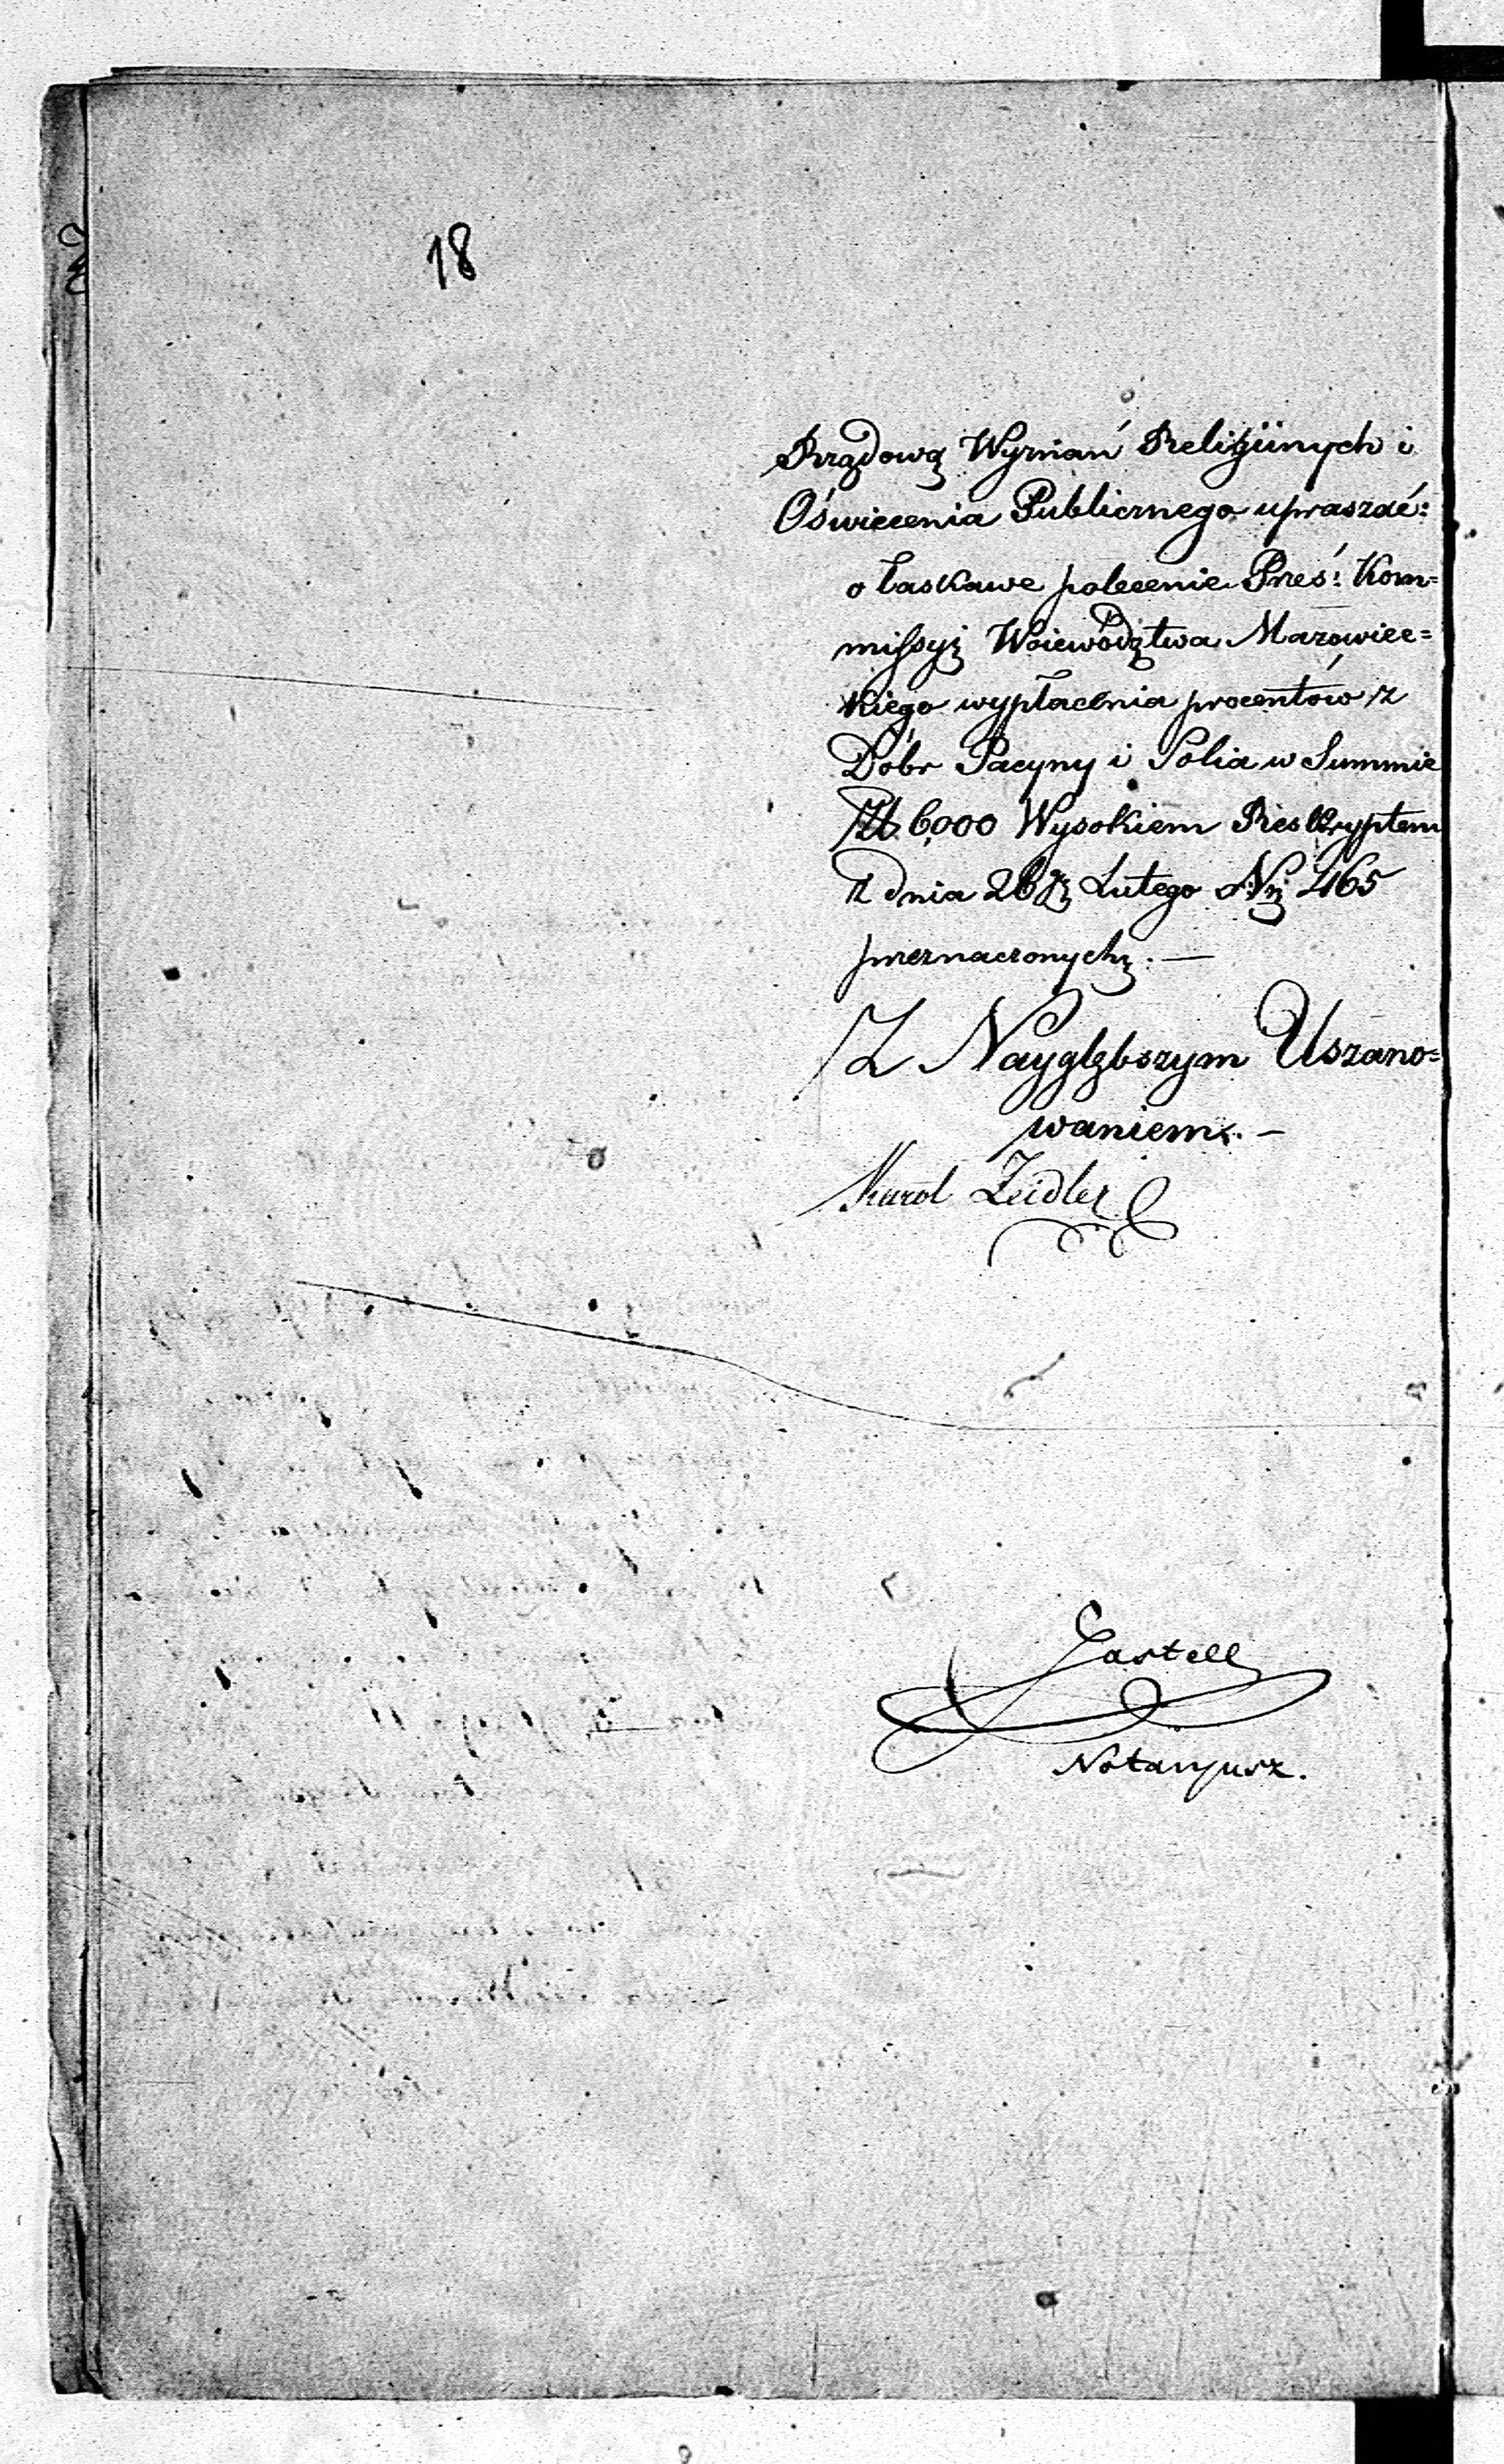 18
Rządową Wyznań Religiinych i
Oświecenia Publicznego upraszać:
o łaskawe polecenie Prześ: Kom=
missyi Woiewództwa Mazowiec=
kiego wypłacenia procentów z
Dóbr Pacyny i Polia w Summie
Zł 6000 Wysokiem Reskryptem
z dnia 26 Lutego Nr 465
przeznaczonych. —
Z Nayglębszym Uszano=
waniem. —
Karol Zeidler
Jastell
Notaryusz.